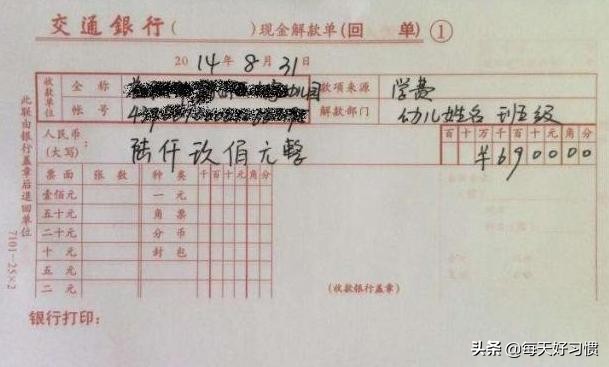 交通銀行( )现金解款单(回 单) ①
2014年8月31日
收款单位 全称 幼儿园 款项来源 学费
帐号 解款部门 幼儿姓名 班级
人民币(大写): 陆仟玖佰元整 百十万千百十元角分 ¥690000
票面 张数 种类 千百十元角分
壹佰元 一元
五十元 角票
二十元 分币
十元 封包
五元
二元
(收款银行盖章)
银行打印:
此联由银行盖章后退回单位
7101-25×2
头条 @每天好习惯